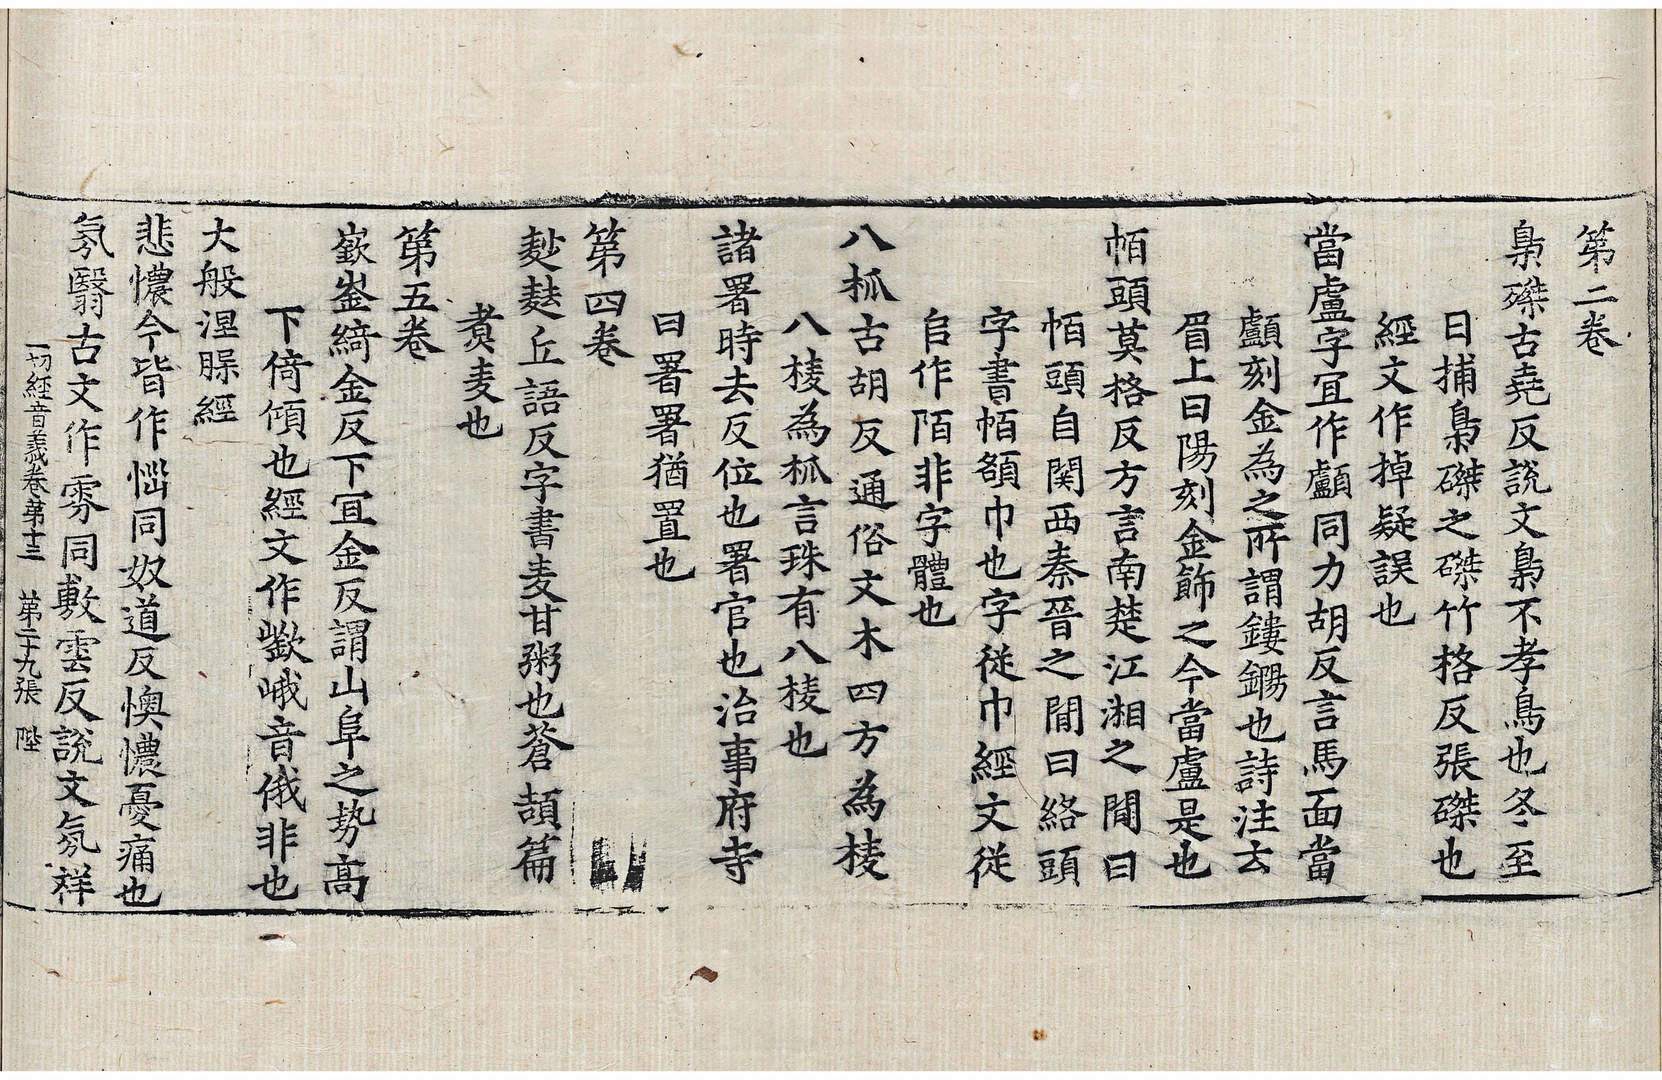 第二卷
梟磔古堯反說文梟不孝鳥也冬至
日捕梟磔之磔竹格反張磔也
經文作掉疑誤也
當盧字冝作顱同力胡反言馬面當
顱刻金為之所謂鏤鍚也詩注云
眉上曰陽刻金飾之今當盧是也
帞頭莫格反方言南楚江湘之閒曰
帞頭自関西秦晉之閒曰絡頭
字書帞頟巾也字從巾經文從
𨸏作陌非字體也
八柧古胡反通俗文木四方為棱
八棱為柧言珠有八棱也
諸署時去反位也署官也治事府寺
曰署署猶置也
第四卷
麨麩丘語反字書麦甘粥也蒼頡篇
煑麦也
第五卷
嶔崟綺金反下冝金反謂山阜之势高
下倚傾也經文作嶔峨音俄非也
大般涅槃經
悲憹今皆作惱同奴道反懊憹憂痛也
氛翳古文作雰同敷雲反說文氛祥
一切經音義卷第十三　第二十九張　陛